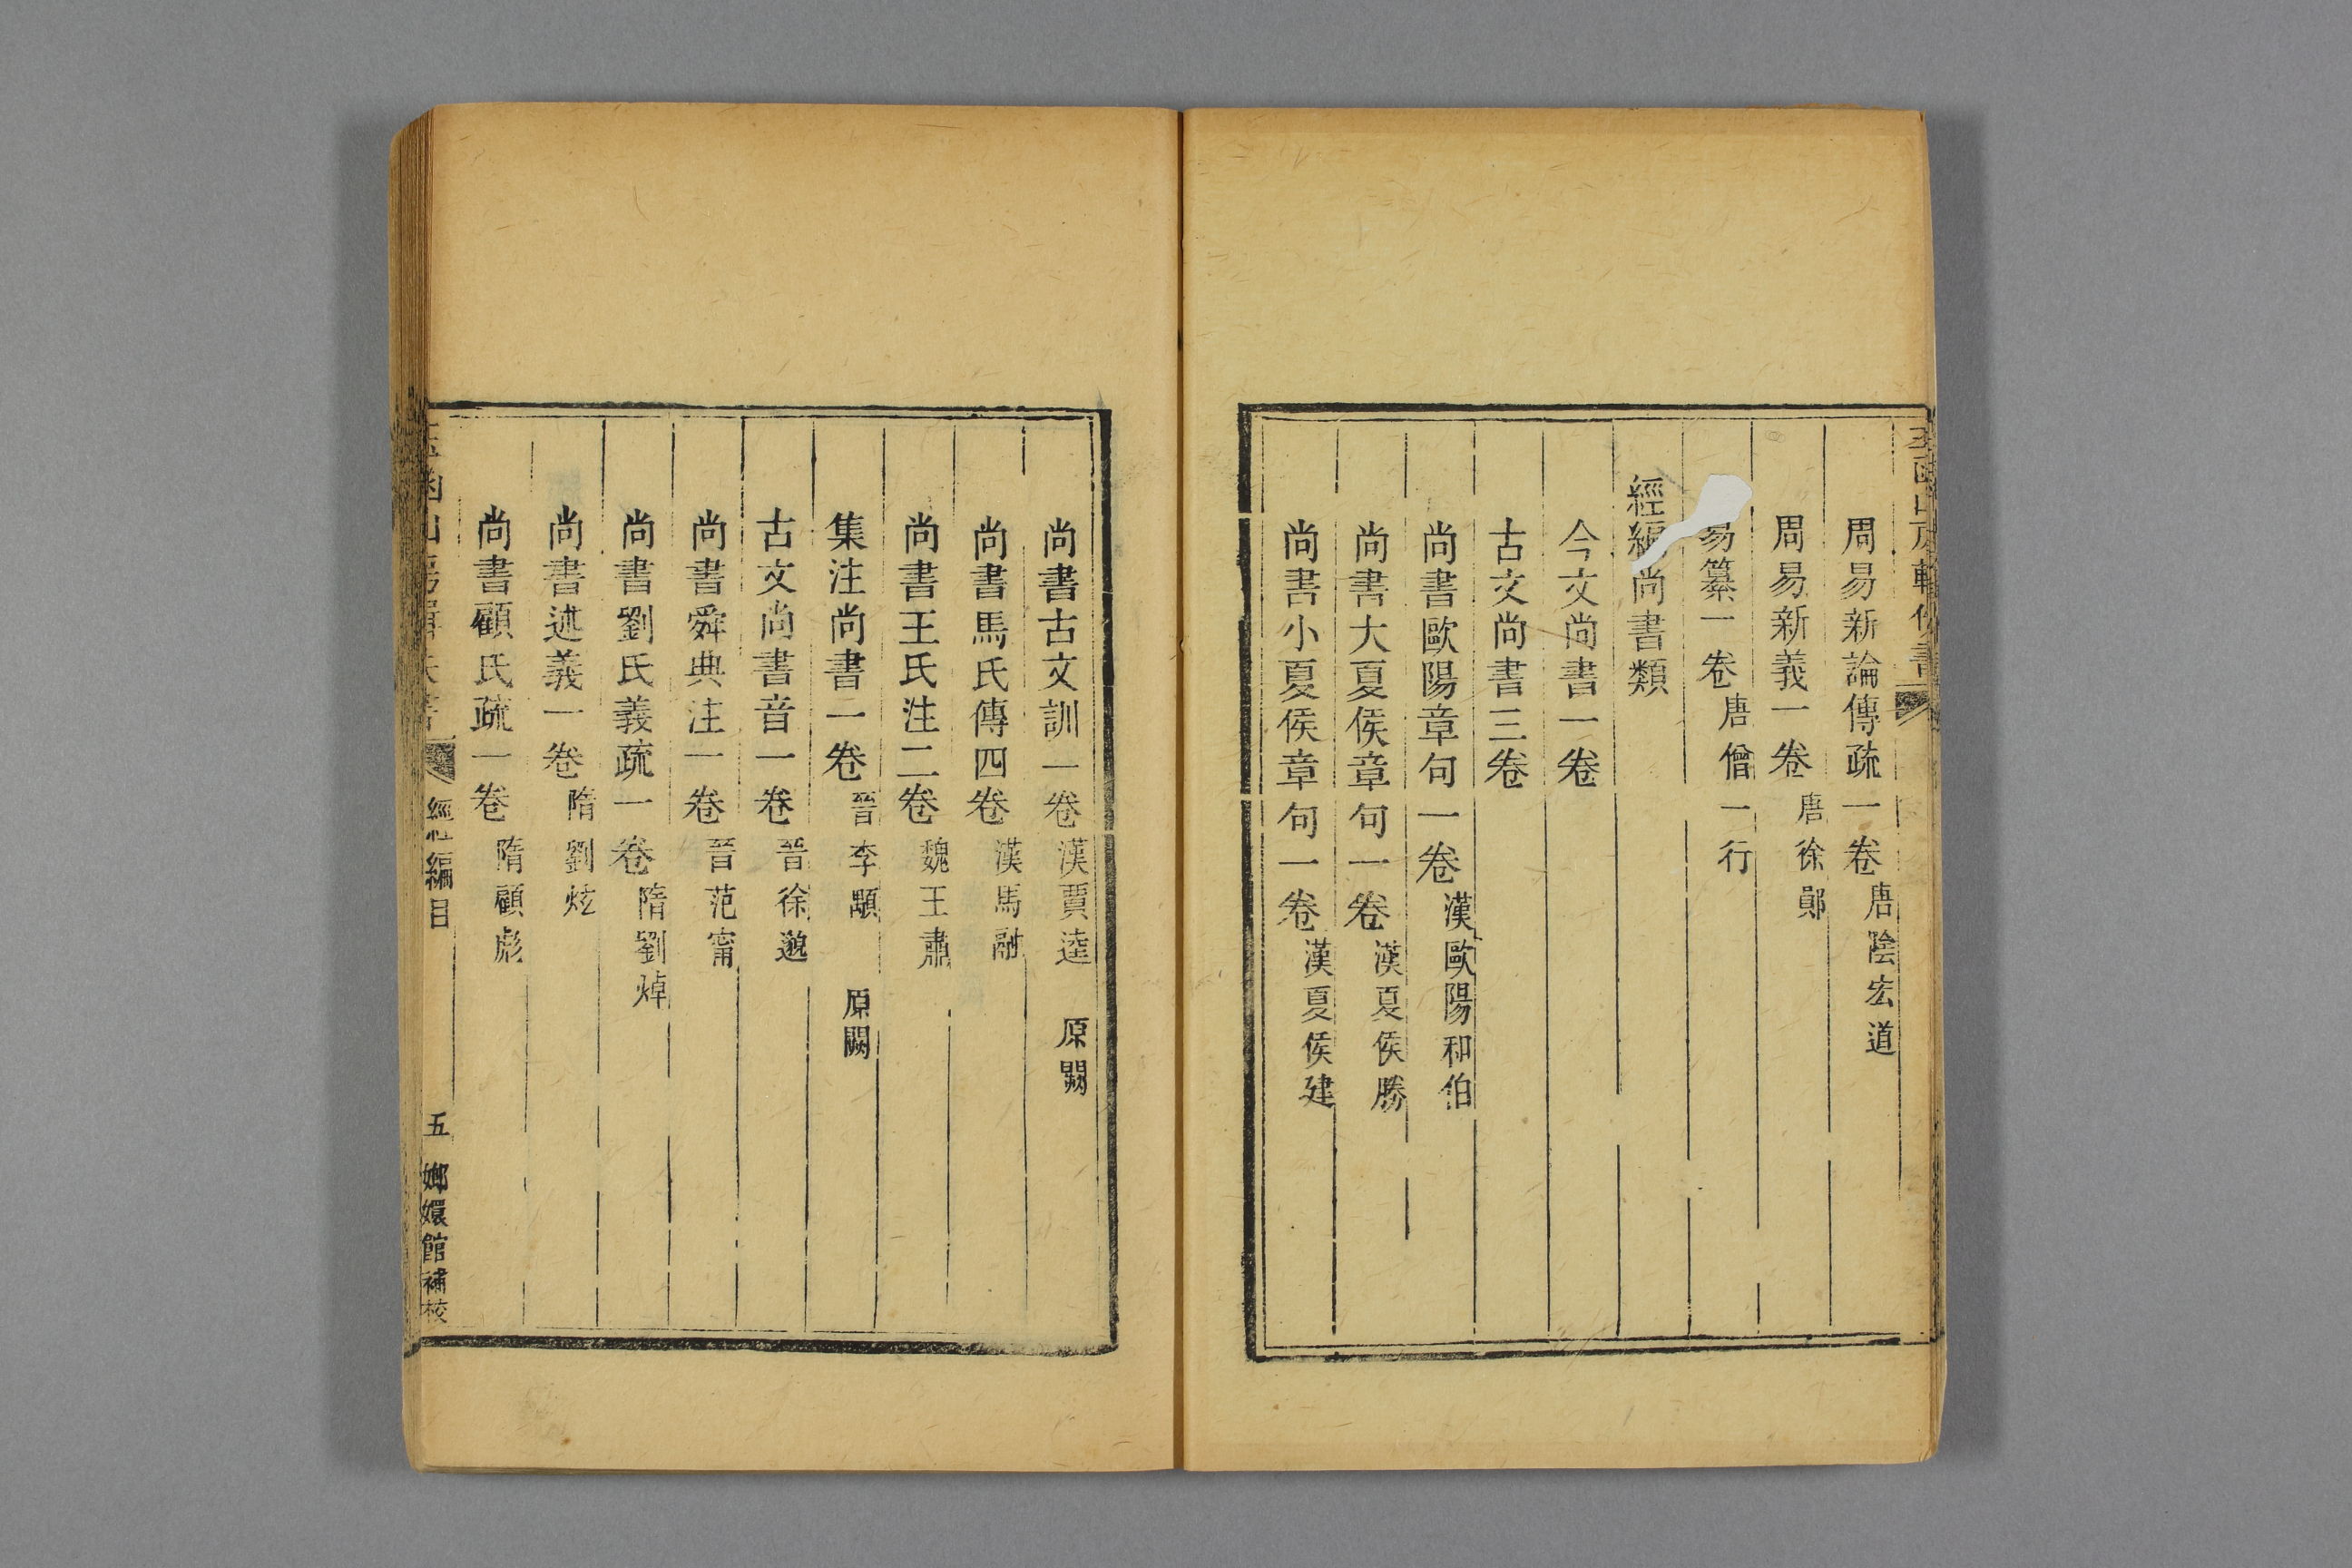 玉函山房輯佚書
周易新論傳疏一卷唐陰宏道
周易新義一卷唐徐鄖
易纂一卷唐僧一行
經編尚書類
今文尚書一卷
古文尚書三卷
尚書歐陽章句一卷漢歐陽和伯
尚書大夏侯章句一卷漢夏侯勝
尚書小夏侯章句一卷漢夏侯建
尚書古文訓一卷漢賈逵 原闕
尚書馬氏傳四卷漢馬融
尚書王氏注二卷魏王肅
集注尚書一卷晉李顒 原闕
古文尚書音一卷晉徐邈
尚書舜典注一卷晉范甯
尚書劉氏義疏一卷隋劉焯
尚書述義一卷隋劉炫
尚書顧氏疏一卷隋顧彪
玉函山房輯佚書 經編目 五 嫏嬛館補校